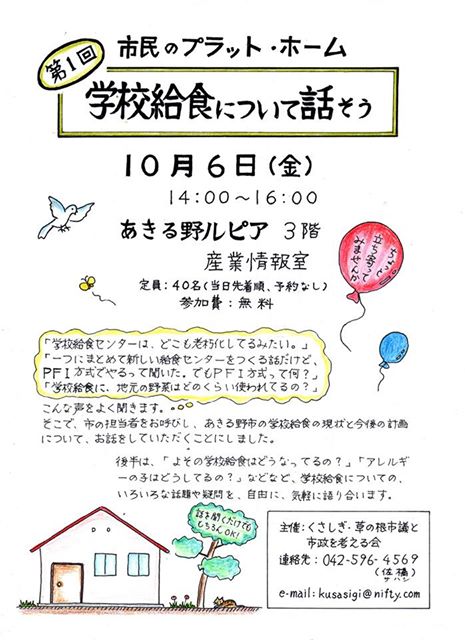 第1回
市民のプラット・ホーム
学校給食について話そう
10月6日(金)
14:00〜16:00
あきる野ルピア 3階
産業情報室
定員:40名(当日先着順、予約なし)
参加費:無料
ちょっと
立ち寄って
みませんか
「学校給食センターは、どこも老朽化してるみたい。」
「一つにまとめて新しい給食センターをつくる話だけど、
PFI方式でやるって聞いた。でもPFI方式って何?」
「学校給食に、地元の野菜はどのくらい使われてるの?」
こんな声をよく聞きます。
そこで、市の担当者をお呼びし、あきる野市の学校給食の現状と今後の計画
について、お話をしていただくことにしました。
後半は、「よその学校給食はどうなってるの?」「アレルギ
ーの子はどうしてるの?」などなど、学校給食についての、
いろいろな話題や疑問を、自由に、気軽に語り合います。
話を聞くだけでも
もちろんOK!
主催:くさしぎ・草の根市議と
市政を考える会
連絡先:042-596-4569
(佐橋)
サハシ
e-mail:kusasigi@nifty.com